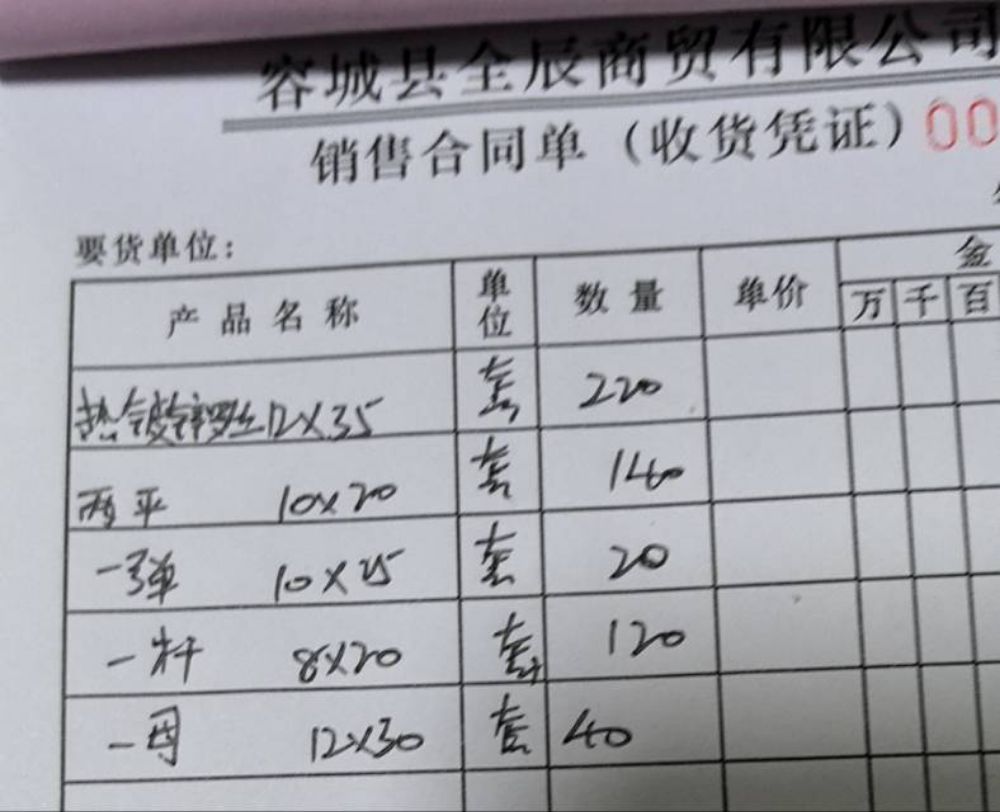 容城县全辰商贸有限公司
销售合同单（收货凭证）00
要货单位：
产品名称 单位 数量 单价 金
万 千 百
热镀锌罗丝12X35 套 220
两平 10X20 套 140
一弹 10X25 套 20
一杆 8X20 套 120
一母 12X30 套 40